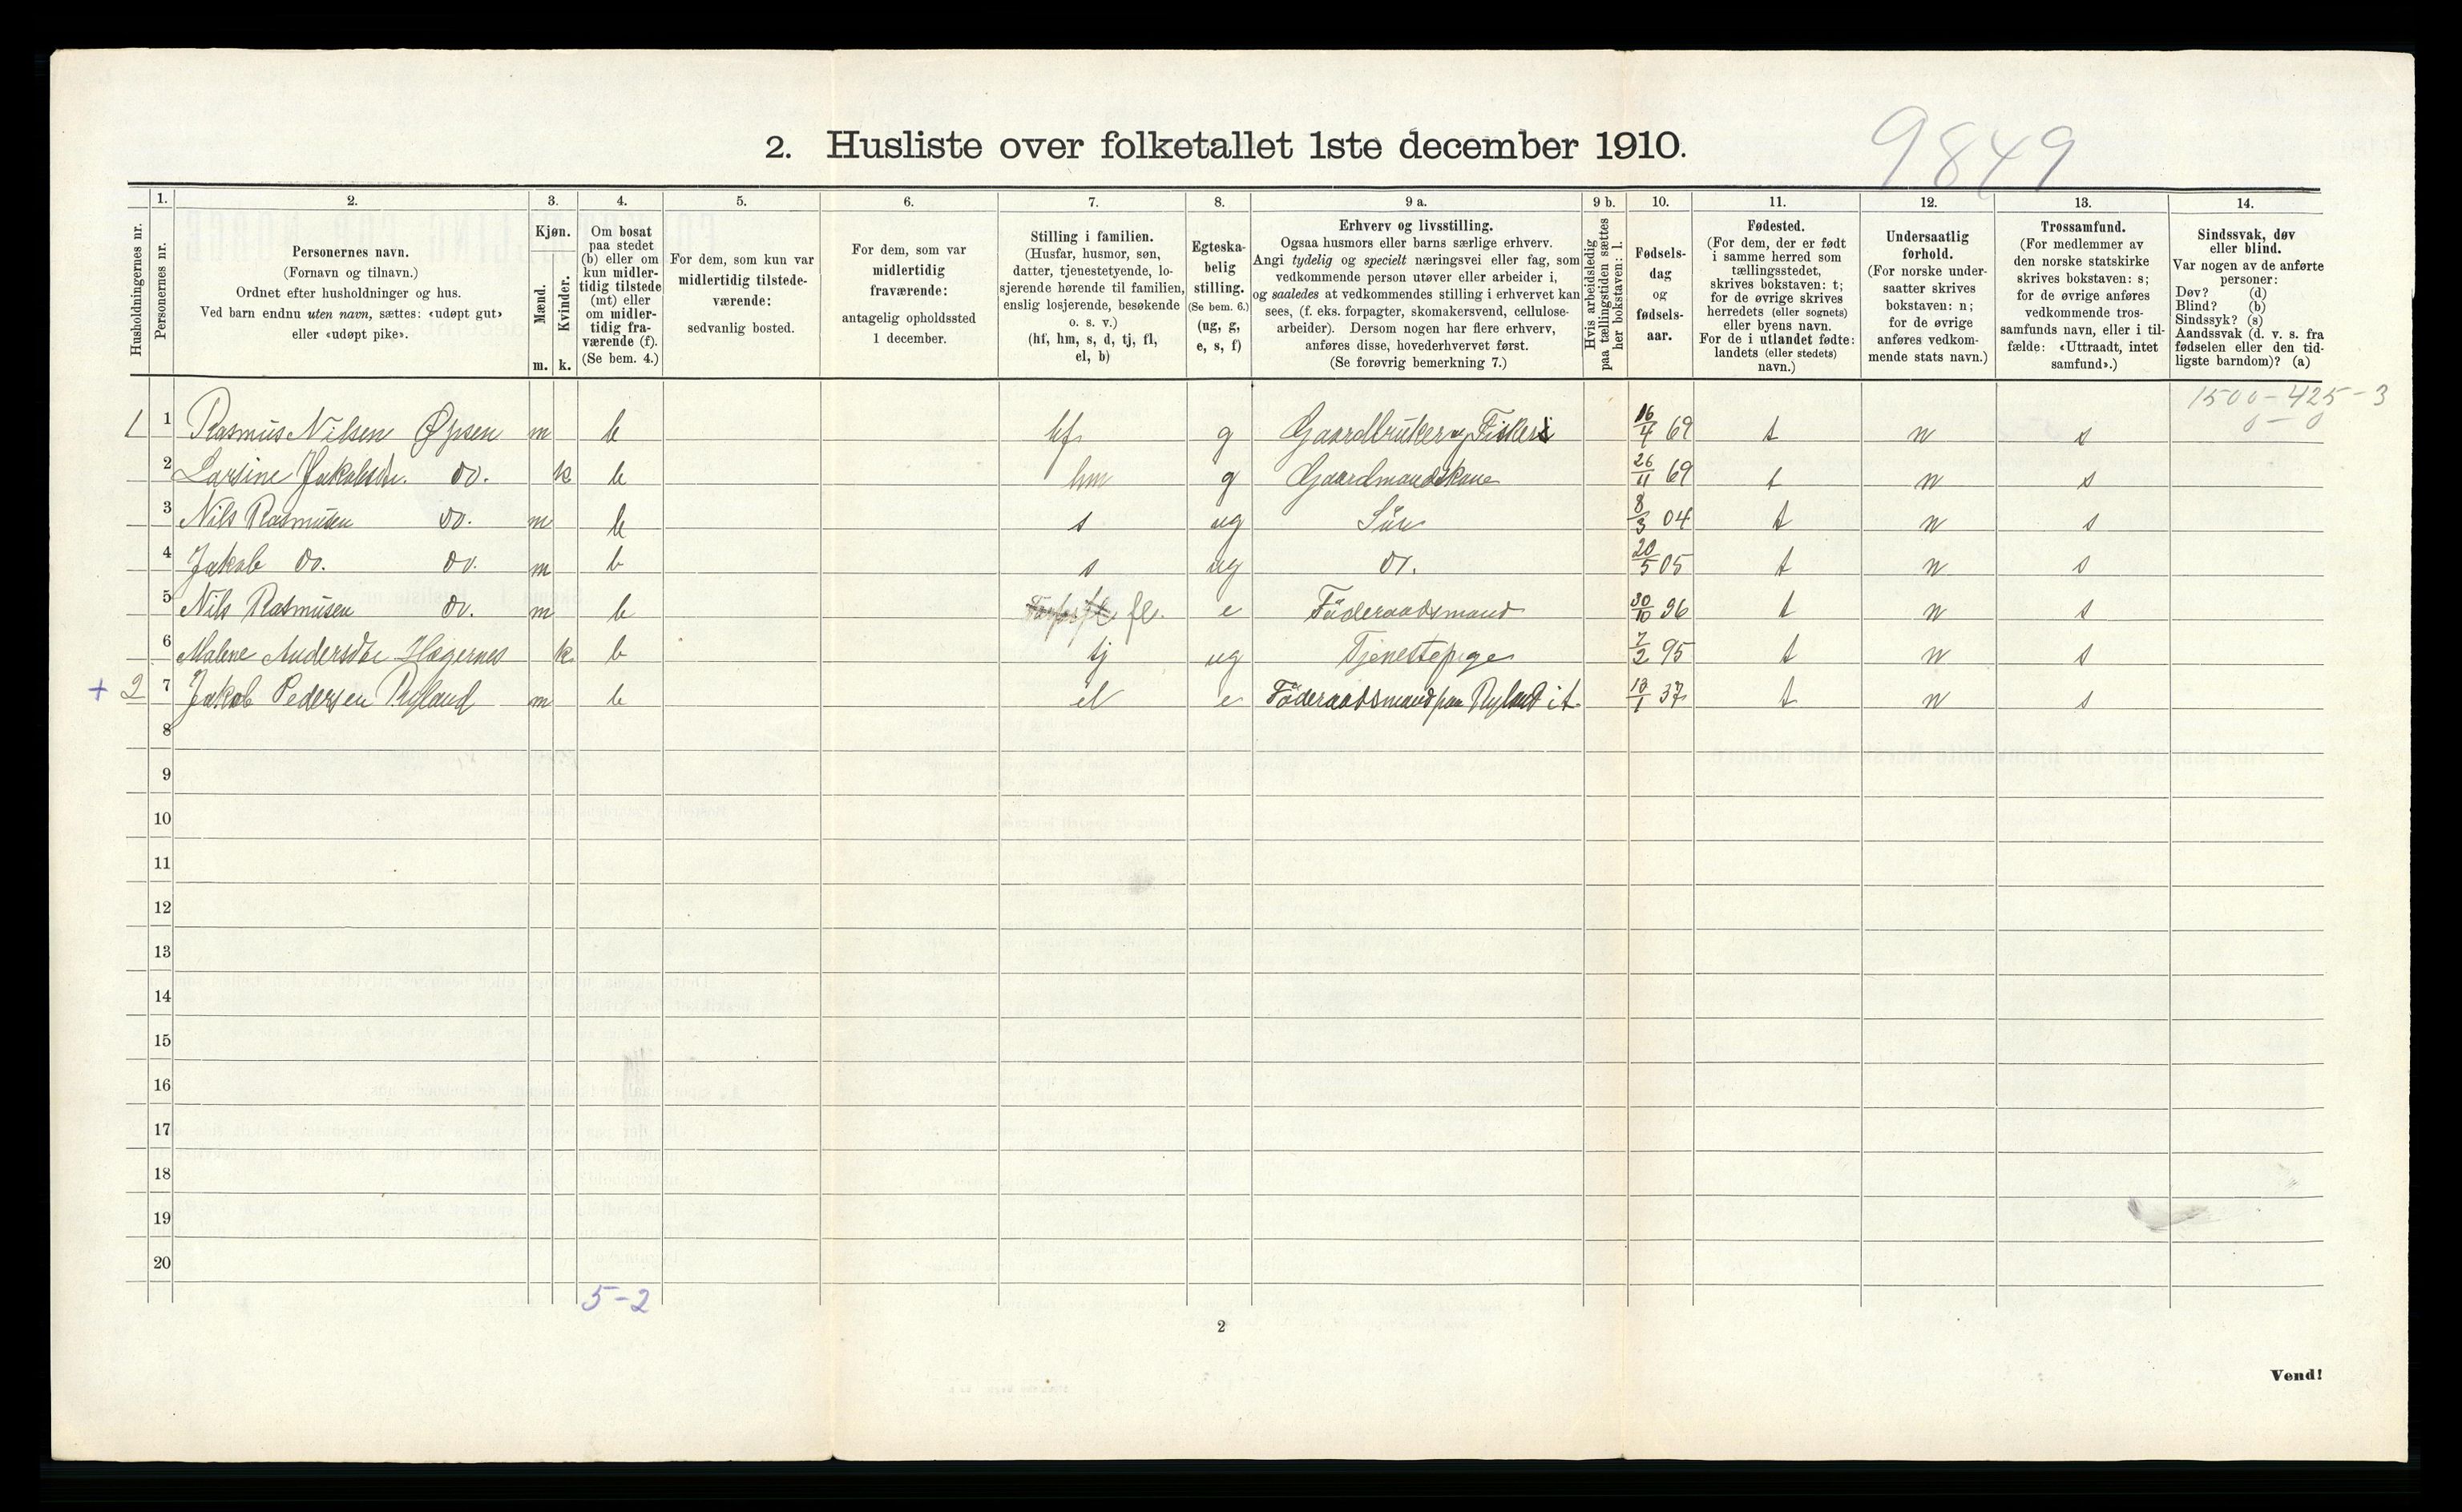 2. Husliste over folketallet 1ste december 1910.
9849
Husholdningernes nr.
1.
Personernes nr.
2.
Personernes navn.
(Fornavn og tilnavn.)
Ordnet efter husholdninger og hus.
Ved barn endnu uten navn, sættes: «udøpt gut»
eller «udøpt pike».
3.
Kjøn.
Mænd.
Kvinder.
m. k.
4.
Om bosat
paa stedet
(b) eller om
kun midler-
tidig tilstede
(mt) eller
om midler-
tidig fra-
værende (f).
(Se bem. 4.)
5.
For dem, som kun var
midlertidig tilstede-
værende:
sedvanlig bosted.
6.
For dem, som var
midlertidig
fraværende:
antagelig opholdssted
1 december.
7.
Stilling i familien.
(Husfar, husmor, søn,
datter, tjenestetyende, lo-
sjerende hørende til familien,
enslig losjerende, besøkende
o. s. v.)
(hf, hm, s, d, tj, fl,
el, b)
8.
Egteska-
belig
stilling.
(Se bem. 6.)
(ug, g,
e, s, f)
9 a.
Erhverv og livsstilling.
Ogsaa husmors eller barns særlige erhverv.
Angi tydelig og specielt næringsvei eller fag, som
vedkommende person utøver eller arbeider i,
og saaledes at vedkommendes stilling i erhvervet kan
sees, (f. eks. forpagter, skomakersvend, cellulose-
arbeider). Dersom nogen har flere erhverv,
anføres disse, hovederhvervet først.
(Se forøvrig bemerkning 7.)
9 b.
Hvis arbeidsledig
paa tællingstiden sættes
her bokstaven: l.
10.
Fødsels-
dag
og
fødsels-
aar.
11.
Fødested.
(For dem, der er født
i samme herred som
tællingsstedet,
skrives bokstaven: t;
for de øvrige skrives
herredets (eller sognets)
eller byens navn.
For de i utlandet fødte:
landets (eller stedets)
navn.)
12.
Undersaatlig
forhold.
(For norske under-
saatter skrives
bokstaven: n;
for de øvrige
anføres vedkom-
mende stats navn.)
13.
Trossamfund.
(For medlemmer av
den norske statskirke
skrives bokstaven: s;
for de øvrige anføres
vedkommende tros-
samfunds navn, eller i til-
fælde: «Uttraadt, intet
samfund».)
14.
Sindssvak, døv
eller blind.
Var nogen av de anførte
personer:
Døv? (d)
Blind? (b)
Sindssyk? (s)
Aandssvak (d. v. s. fra
fødselen eller den tid-
ligste barndom)? (a)
1500-425-3
0-0
1 1 Rasmus Nilsen Øpsen m b hf g Gaardbruker og Fisker 16/4 69 t n s
2 Larsine Jakobsdtr. do. k b hm g Gaardmandskone 26/11 69 t n s
3 Nils Rasmusen do. m b s ug Sön 8/3 04 t n s
4 Jakob do. do. m b s ug do. 20/5 05 t n s
5 Nils Rasmusen do. m b fl. e Föderaadsmand 30/10 36 t n s
6 Malene Andersdtr Hægernes k b tj ug Tjenestepige 7/2 95 t n s
+ 2 7 Jakob Pedersen Ryland m b el e Föderaadsmand paa Ryland i t. 13/1 37 t n s
8
9
10
11
12
13
14
15
16
17
18
19
20
5-2
2
Vend!